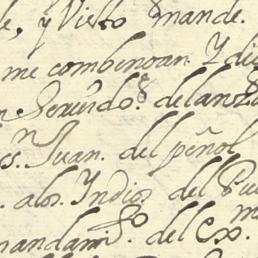 e, y Visto mande.
me combengan. Y di
Serui.do.r de la nz.a
Juan. del peñol
. a los. Indios del Pue
mandami.to del ex.mo